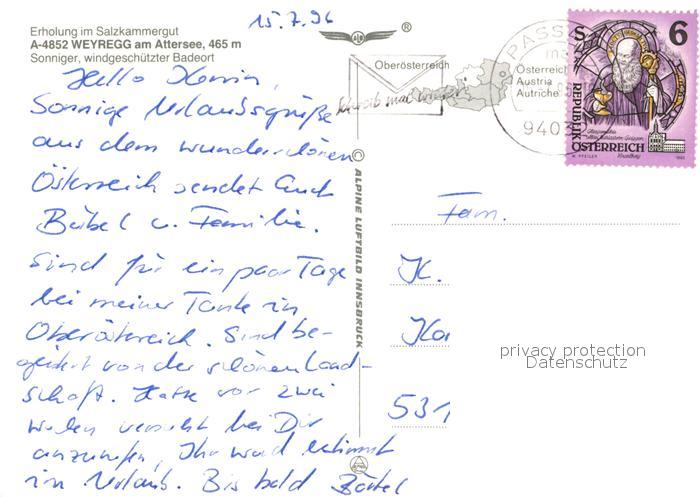 15.7.96
Erholung im Salzkammergut
A-4852 WEYREGG am Attersee, 465 m
Sonniger, windgeschützter Badeort
Hello
Sonnige Urlaubsgrüße
aus dem wunderschönen
Österreich sendet Euch
Bärbel u. Familie.
Sind für ein paar Tage
bei meiner Tante in
Oberösterreich. Sind be-
geistert von der schönen Land-
schaft. Hatte vor zwei
Wochen versucht bei Dir
anzurufen, Ihr ward bestimmt
im Urlaub. Bis bald Bärbel
®
Oberösterreich
Schreib mal wieder
PASS
Österreich
Austria
Autriche
940
S 6
REPUBLIK
ÖSTERREICH
ALPINE LUFTBILD INNSBRUCK
Fam.
K.
531
privacy protection
Datenschutz